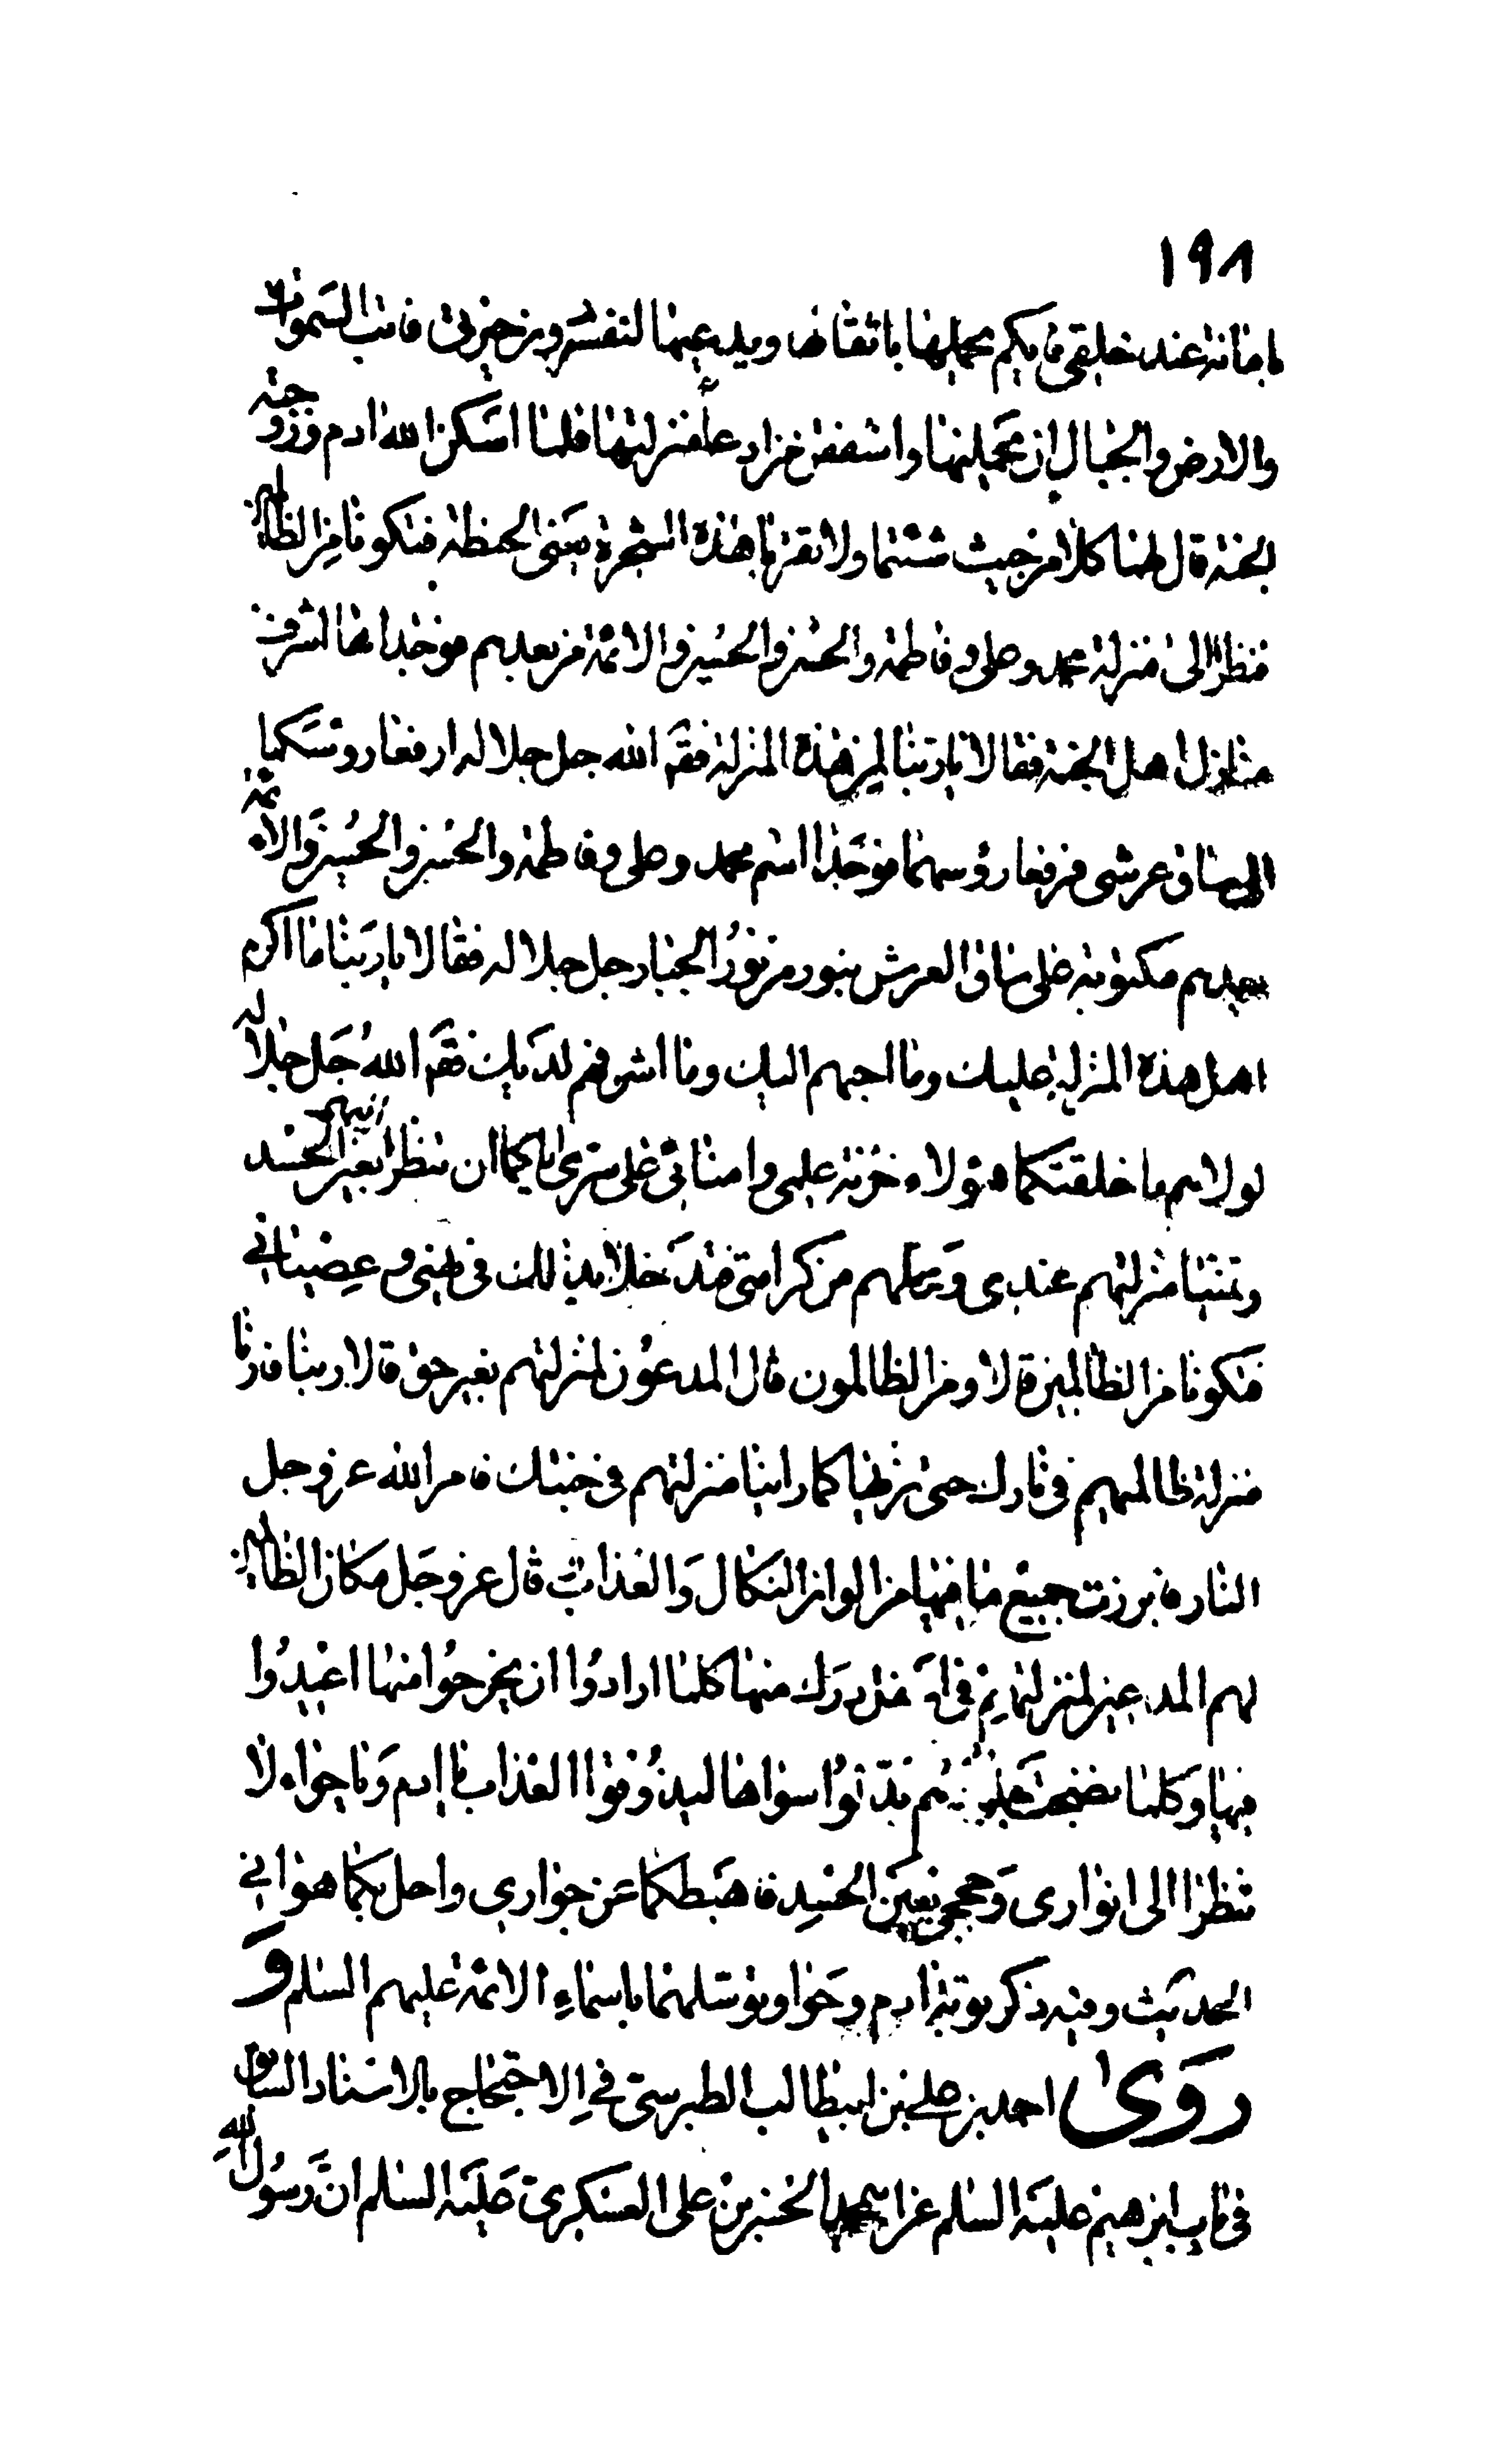 ١٩٨
امانة عند خلقى فايكم يحملها باثقالها ويدعيها لنفسه دون خيرتى فابت السموات
والارض والجبال ان يحملنها واشفقن من ادعاء منزلتها فلما اسكن الله ادم وزوجته
الجنة قال لهما كلا من حيث شئتما ولا تقربا هذه الشجرة يعنى الحنطة فتكونا من الظالمين
فنظرا الى منزلة محمد وعلى وفاطمة والحسن والحسين والائمة من بعدهم فوجداها اشرف
منازل اهل الجنة فقالا ياربنا لمن هذه المنزلة فقال الله جل جلاله ارفعا روسكما
الى ساق عرشى فرفعا رؤسهما فوجدا اسم محمد وعلى وفاطمة والحسن والحسين والائمة
بعدهم مكتوبة على ساق العرش بنور من نور الجبار جل جلاله فقالا ياربنا ما اكرم
اهل هذه المنزلة عليك وما احبهم اليك وما اشرفهم لديك فقال الله جل جلاله
لولاهم ما خلقتكما هؤلاء خزنة علمى وامنائى على سرى اياكما ان تنظرا اليهم بعين الحسد
وتمنيا منزلتهم عندى ومحلهم من كرامتى فتدخلا بذلك فى نهيى وعصيانى
فتكونا من الظالمين قالا ومن الظالمون قال المدعون لمنزلتهم بغير حق قالا ربنا فارنا
منزلة ظالميهم فى نارك حتى نريها كما راينا منزلتهم فى جنتك فامر الله عز وجل
النار فابرزت جميع ما فيها من الوان النكال والعذاب قال عز وجل مكان الظالمين
لهم المدعين لمنزلتهم فى اسفل درك منها كلما ارادوا ان يخرجوا منها اعيدوا
فيها وكلما نضجت جلودهم بدلوا سواها ليذوقوا العذاب يا ادم ويا حواء لا
تنظرا الى انوارى وحججى بعين الحسد فاهبطكما عن جوارى واحل بكما هوانى
الحديث وفيه ذكر توبة ادم وحوا وتوسلهما باسماء الائمة عليهم السلم و
روى احمد بن على بن ابيطالب الطبرسى فى الاحتجاج بالاسناد السابق
فى باب ابرهيم عليه السلم عن ابى محمد الحسن بن على العسكرى عليه السلم ان رسول الله